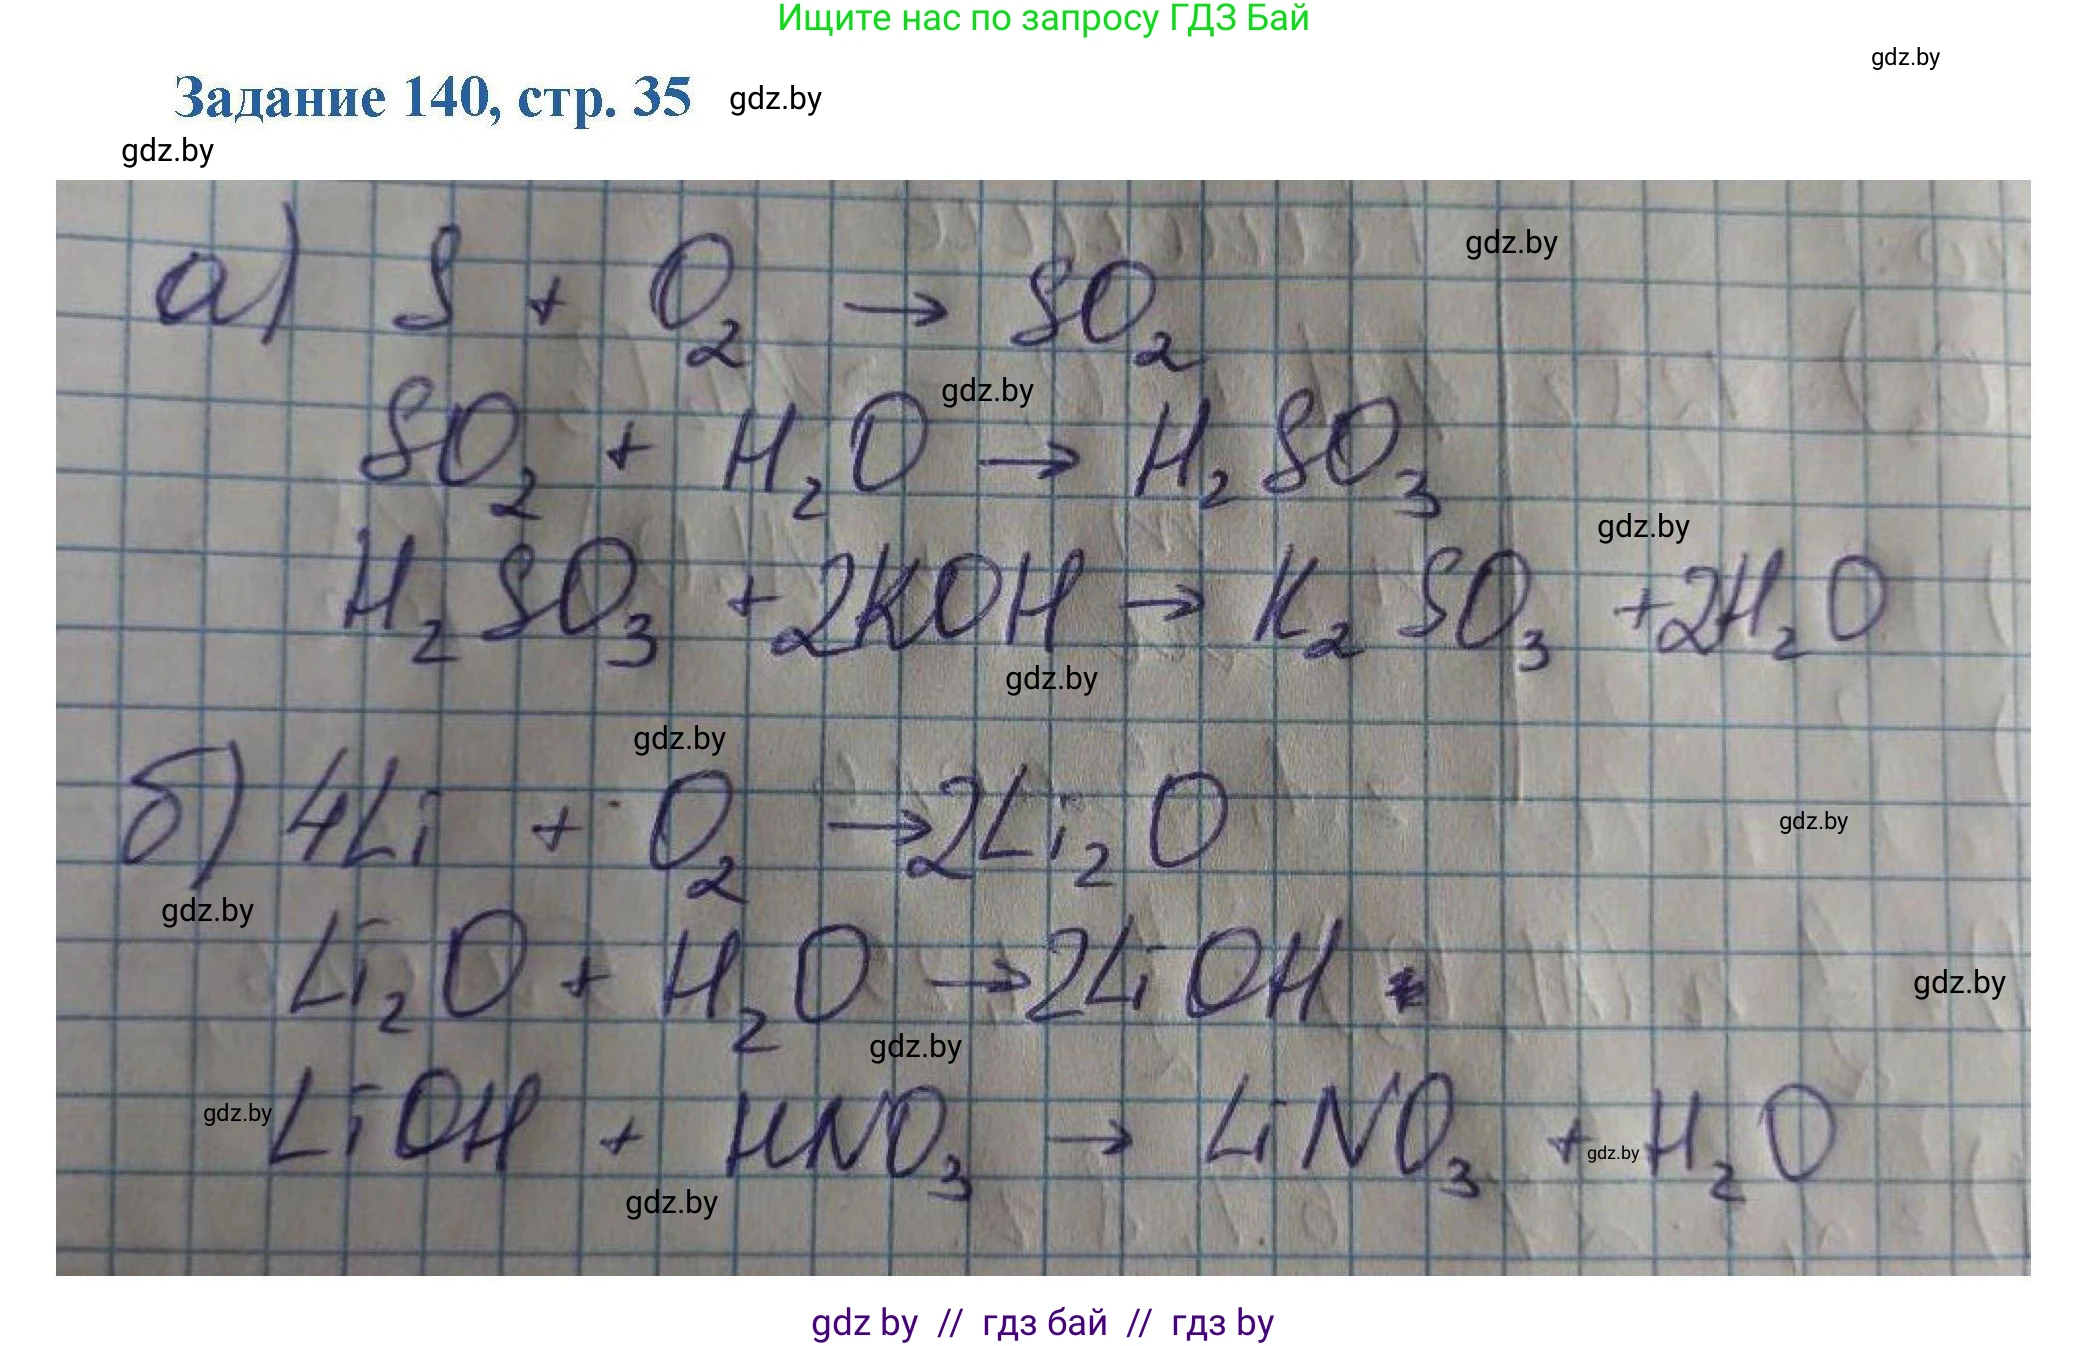 Ищите нас по запросу ГДЗ Бай
gdz.by
Задание 140, стр. 35 gdz.by
gdz.by
а) S + O₂ → SO₂
gdz.by
gdz.by
SO₂ + H₂O → H₂SO₃
gdz.by
H₂SO₃ + 2KOH → K₂SO₃ + 2H₂O
gdz.by
gdz.by
б) 4Li + O₂ → 2Li₂O
gdz.by
gdz.by
Li₂O + H₂O → 2LiOH
gdz.by
gdz.by
gdz.by
LiOH + HNO₃ → LiNO₃ + H₂O
gdz.by
gdz.by
gdz by // гдз бай // гдз by